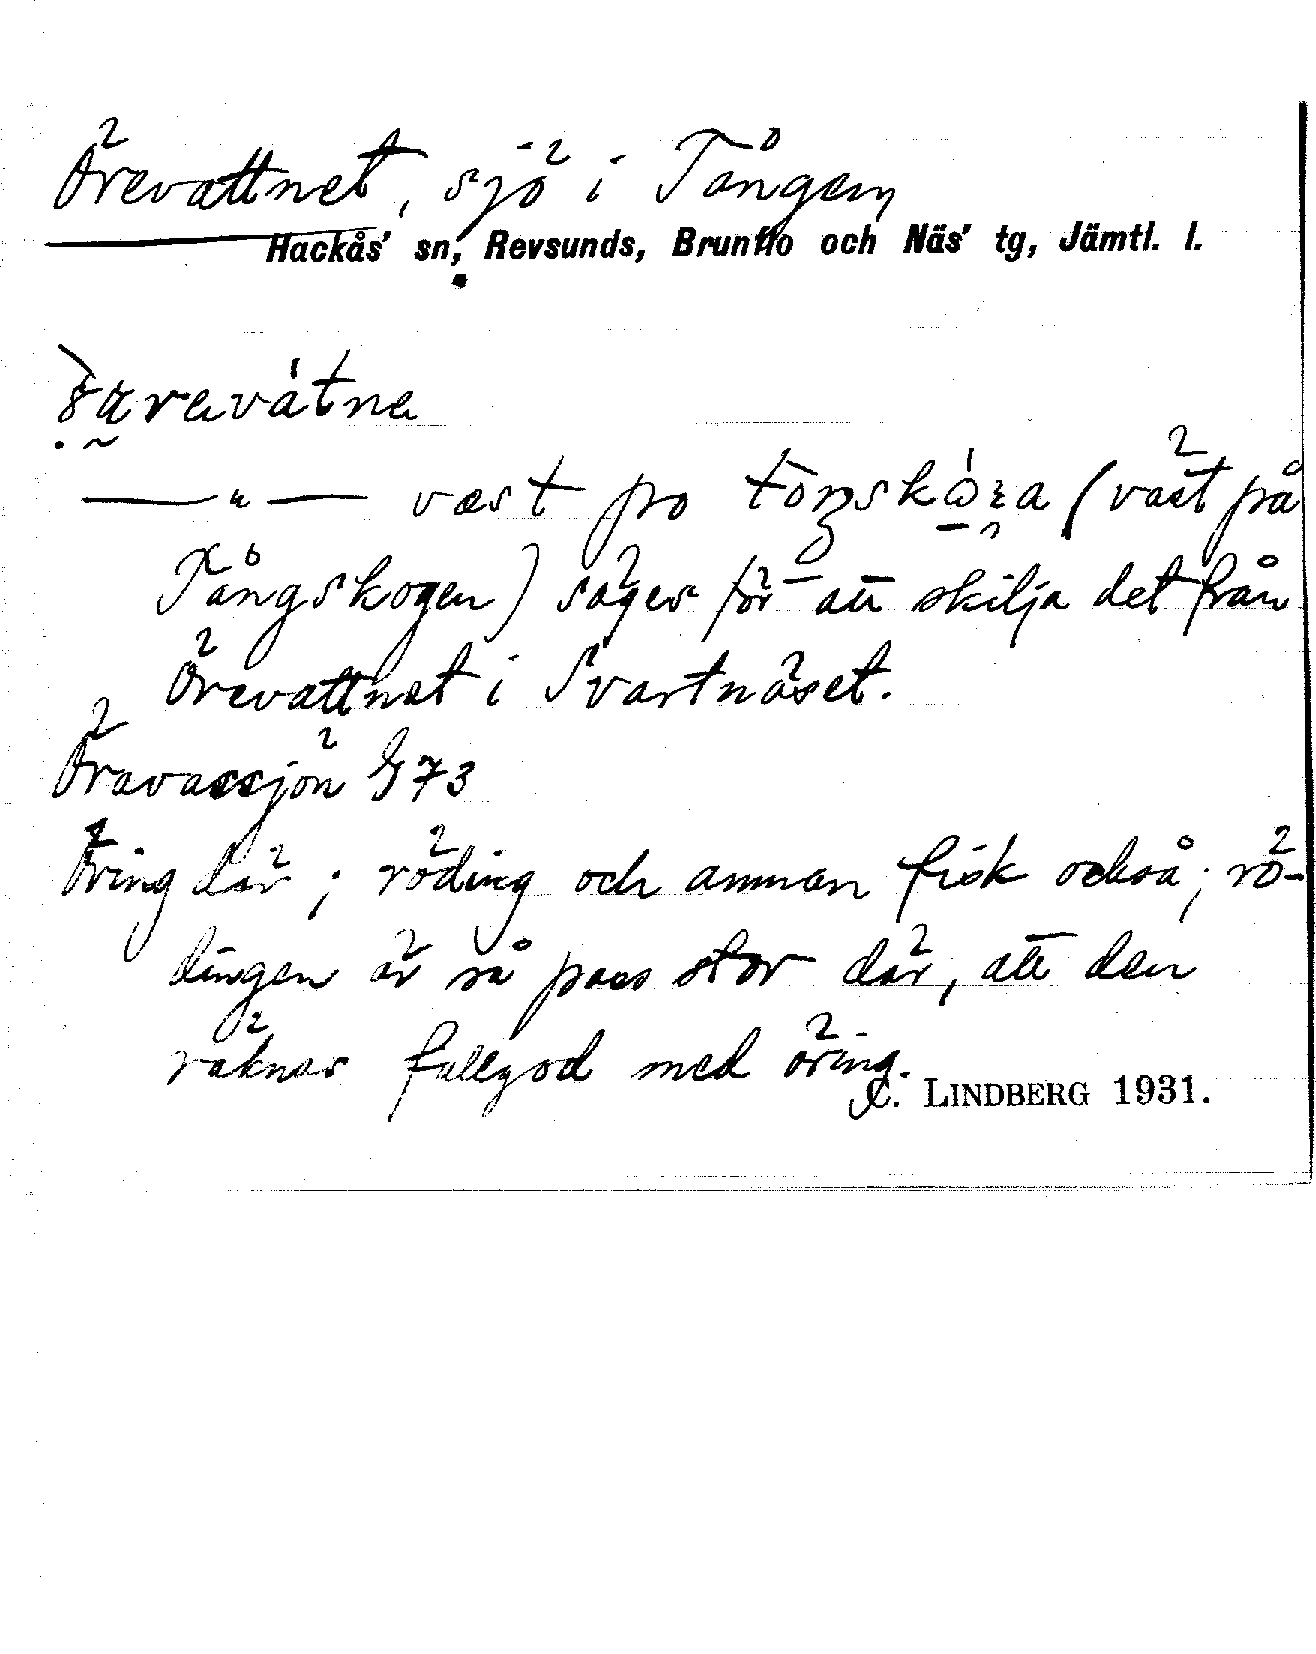 Örevattnet, sjö i Tången
Hackås' sn, Revsunds, Brunflo och Näs' tg, Jämtl. l.
—"— væst på (väst på
Tångskogen) säges för att skilja det från
Örevattnet i Svartnäset.
Öravassjön G 73
Öring där; röding och annan fisk också; rö-
dingen är så pass stor där, att den
räknas fullgod med öring.
C. LINDBERG 1931.